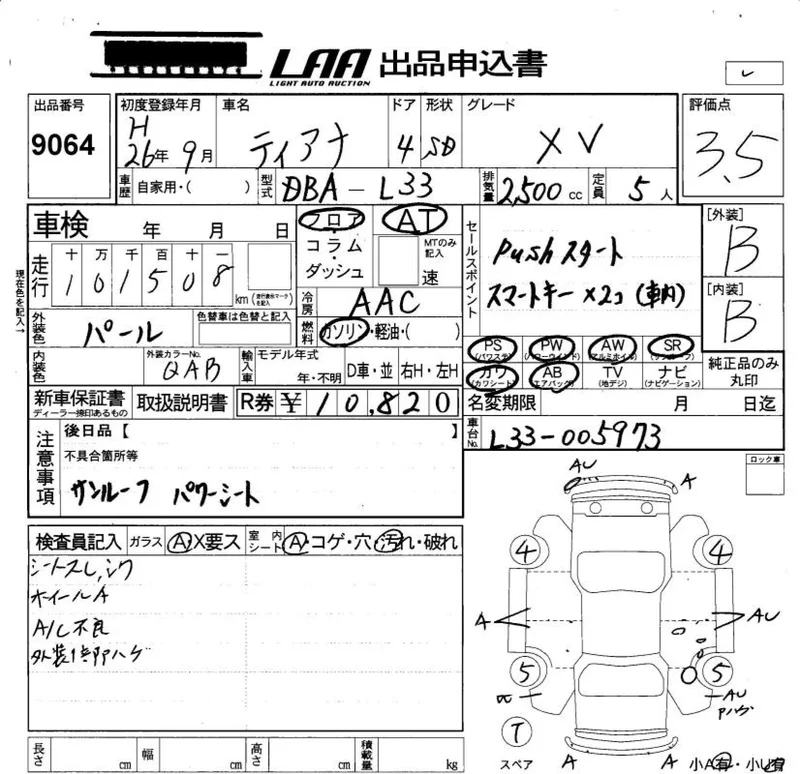 LAA 出品申込書
LIGHT AUTO AUCTION
出品番号
9064
初度登録年月
H
26年 9月
車名
ティアナ
ドア
4
形状
SD
グレード
XV
評価点
3.5
車歴
自家用・( )
型式
DBA-L33
排気量
2,500 cc
定員
5人
車検 年 月 日
フロア
コラム・
ダッシュ
AT
MTのみ記入
速
セールスポイント
Pushスタート
スマートキー×2コ(車内)
[外装]
B
[内装]
B
現在色を記入→
走行
十 万 千 百 十 一
1 0 1 5 0 8
km
冷房
AAC
燃料
ガソリン・軽油・( )
外装色
パール
色替車は色替と記入
PS (パワステ)
PW (パワーウインド)
AW (アルミホイル)
SR (サンルーフ)
カワ (カワシート)
AB (エアバッグ)
TV (地デジ)
ナビ (ナビゲーション)
純正品のみ
丸印
内装色
外装カラーNo.
QAB
輸入車
モデル年式
年・不明
D車・並
右H・左H
新車保証書
ディーラー捺印あるもの
取扱説明書
R券 ¥ 10,820
名変期限 月 日迄
車台No.
L33-005973
注意事項
後日品【 】
不具合箇所等
サンルーフ パワーシート
ロック車
検査員記入
ガラス
A・X要ス
室内シート
A・コゲ・穴・汚れ・破れ
シートスレ、シワ
ホイールA
A/C不良
外装1部ハゲ
AU
A
4
4
A
AU
5
5
AU
Pハゲ
T
スペア
A
A
小A有・小U有
長さ cm
幅 cm
高さ cm
積載量 kg